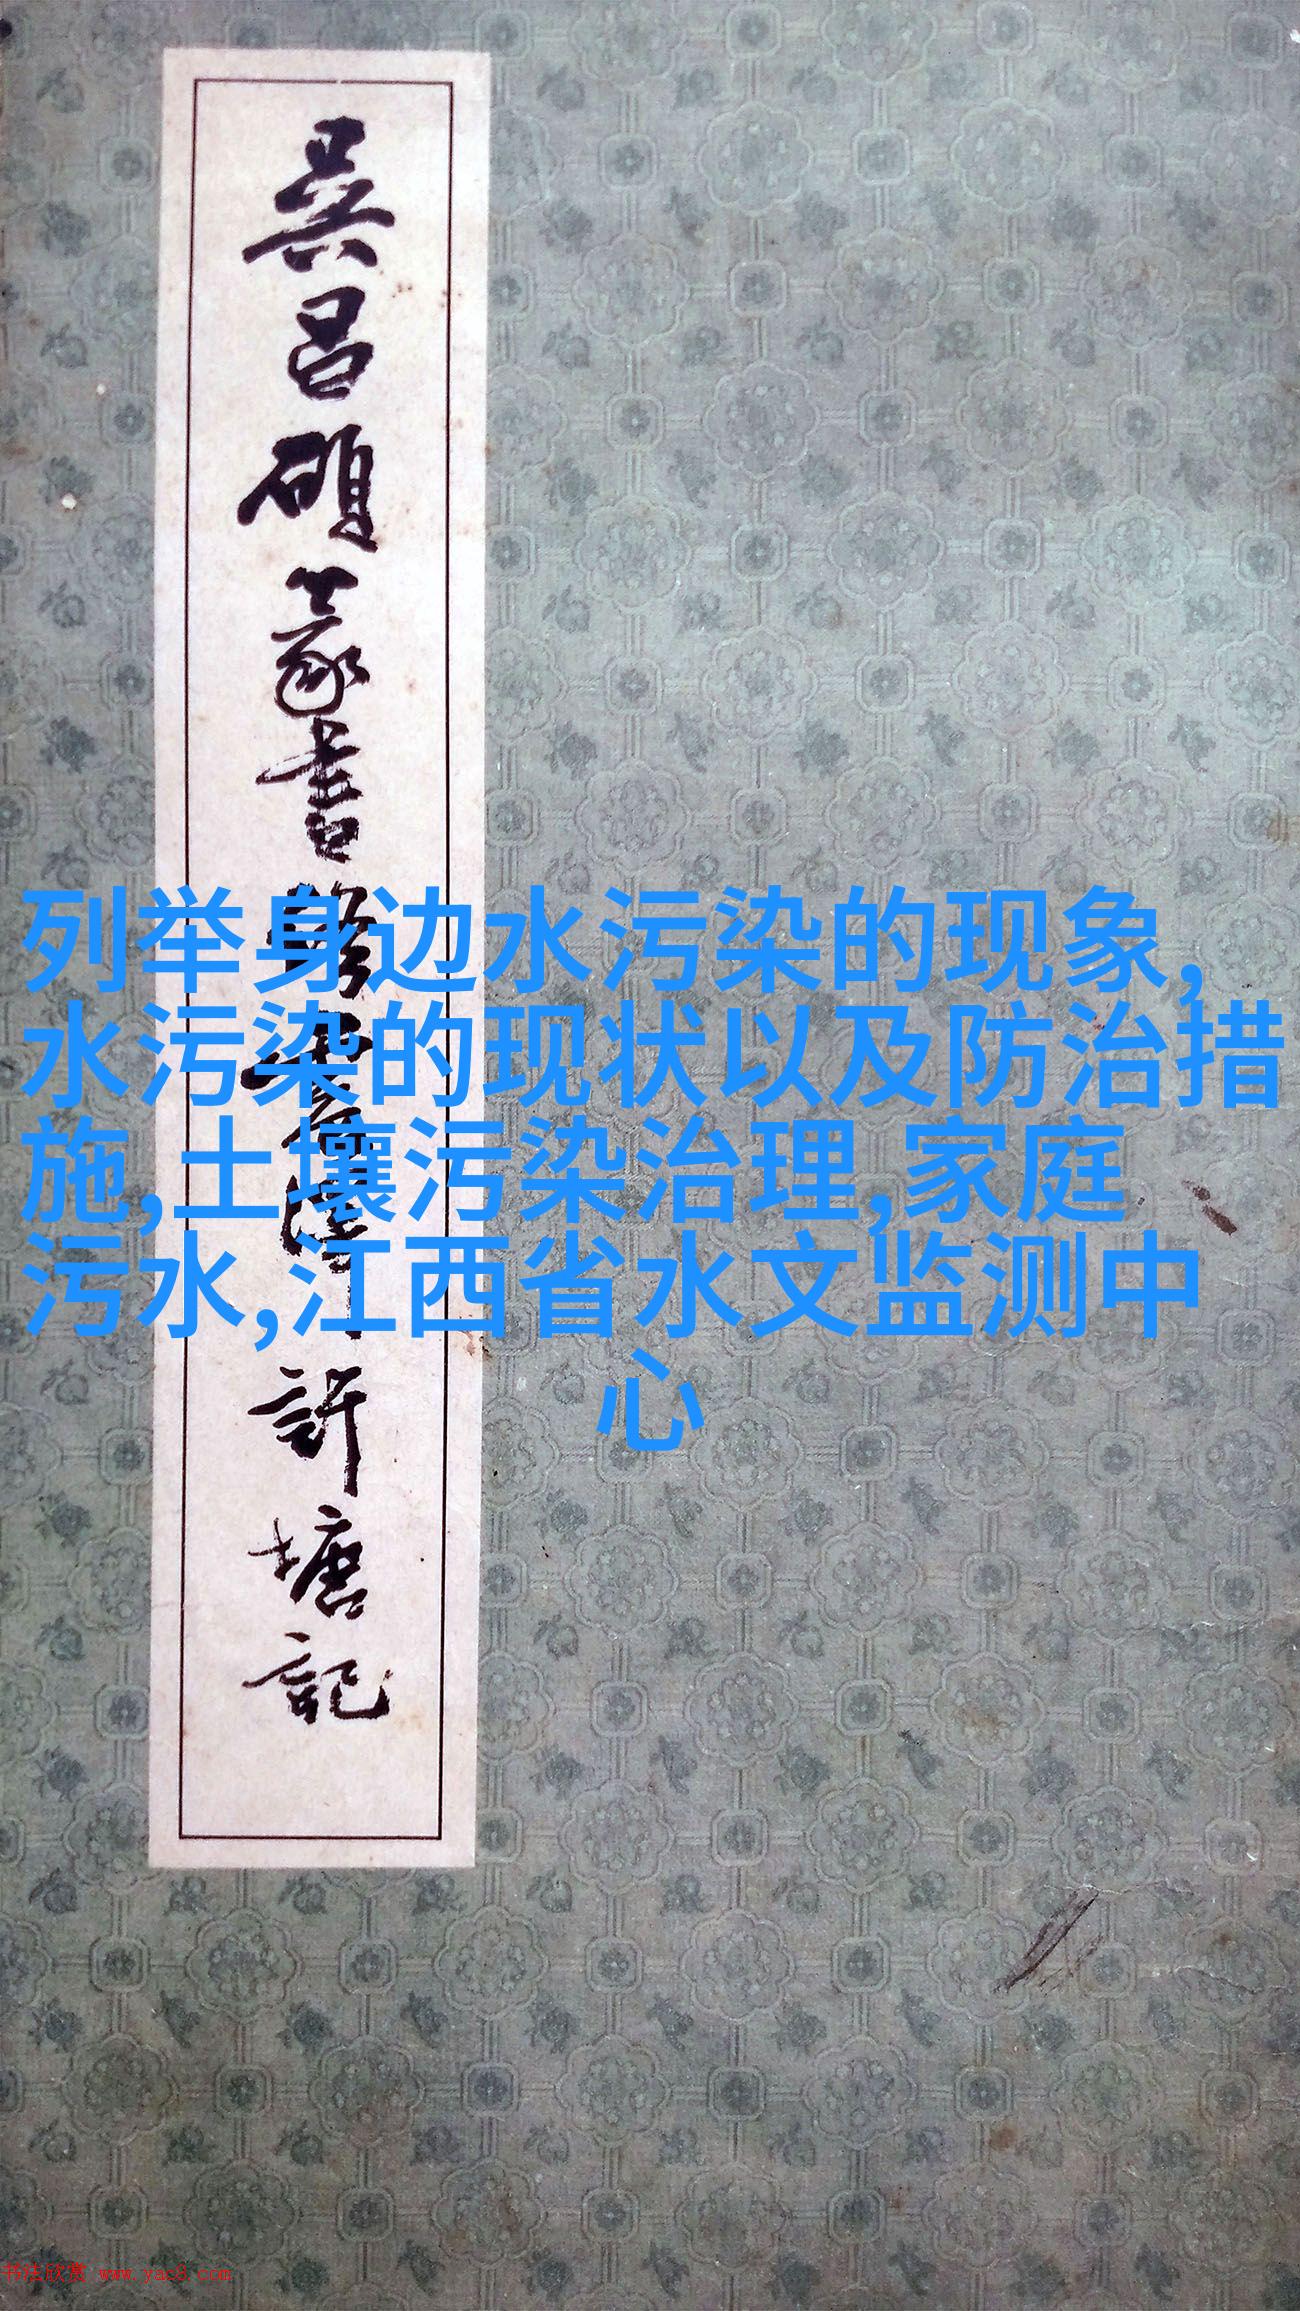 吳昌碩篆書脩震澤許塘記
列举身边水污染的现象,
水污染的现状以及防治措
施,土壤污染治理,家庭
污水,江西省水文监测中
心
书法欣赏 www.yac8.com